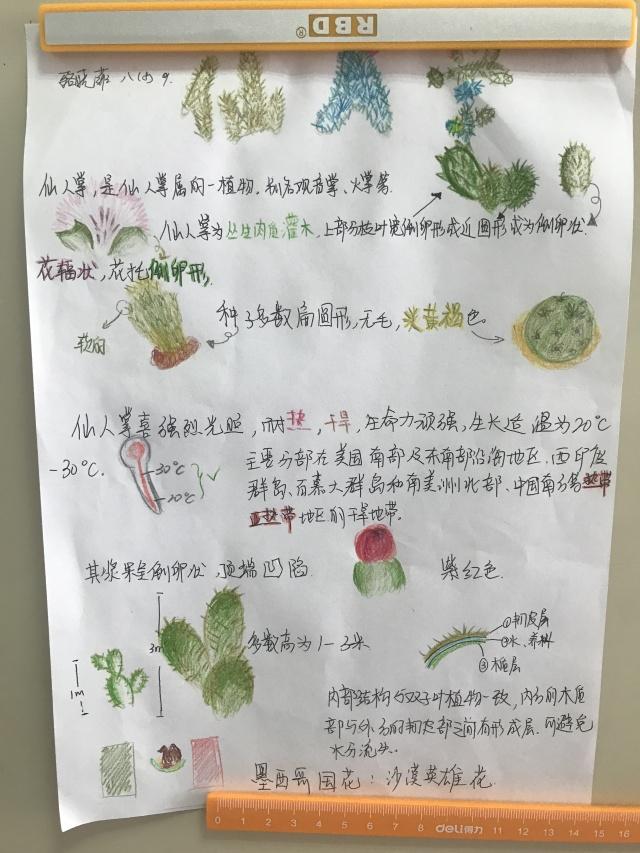 RBD®
八(4) 9.
仙人掌
仙人掌,是仙人掌属的一植物.别名观音掌、火掌等.
仙人掌为丛生肉质灌木,上部分枝叶宽倒卵形或近圆形或为倒卵状.
花辐状,花托倒卵形.
种子多数扁圆形,无毛,淡黄褐色.
仙人掌喜强烈光照,耐热,干旱,生命力顽强,生长适温为20℃
-30℃.
30℃
20℃
主要分部在美国南部及东南部沿海地区、西印度
群岛、百慕大群岛和南美洲北部、中国南方等热带
亚热带地区的干旱地带。
其浆果呈倒卵状,顶端凹陷.
紫红色.
3m
多数高为1-3米
1m
①韧皮层
②水、养料
③木质层
内部结构与双子叶植物一致,内方的木质
部与外方的韧皮部之间有形成层.可避免
水分流失.
墨西哥国花:沙漠英雄花.
0 1 2 3 4 5 6 7 8 deli得力 11 12 13 14 15 16